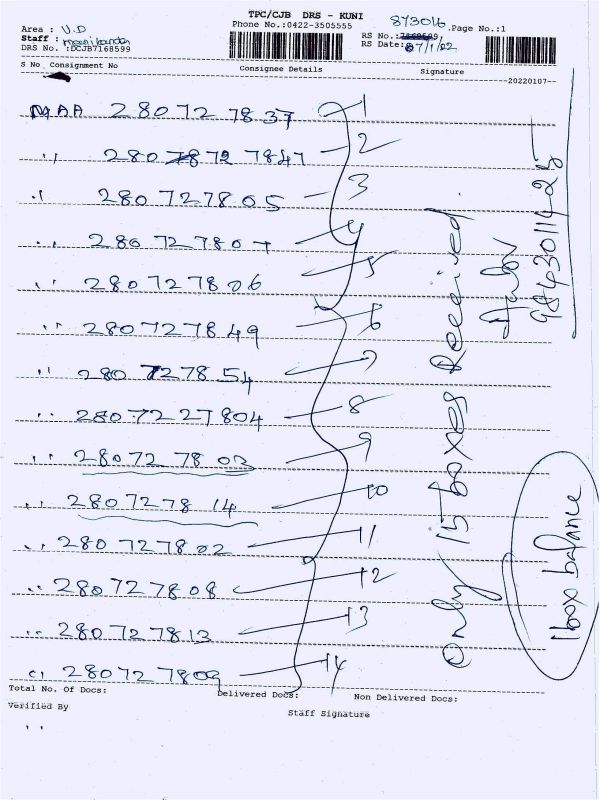 TPC/CJB DRS - KUNI
Phone No.:0422-3505555
Area : U.D
Staff : manikandan
DRS No. :DCJB7168599
873016
Page No.:1
RS No.:7168599
RS Date: 07/1/22
S No Consignment No Consignee Details Signature
--20220107--
MAA 280727837 1
,, 280 787 727847 2
,, 280727805 3
,, 280727807 4
,, 280727806 5
,, 280727849 6
,, 280727854 7
,, 2807227804 8
,, 280727803 9
,, 280727814 10
,, 280727802 11
,, 280727808 12
,, 280727813 13
,, 280727809 14
only 15 boxes Received.
9843011425
1box balance
Total No. Of Docs: Delivered Docs: Non Delivered Docs:
Verified By
Staff Signature